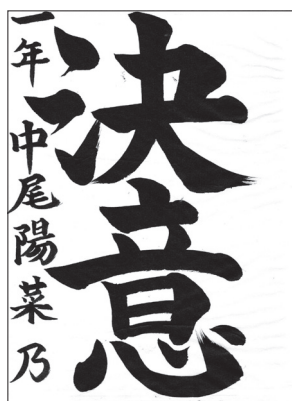 決意
一年 中尾陽菜乃